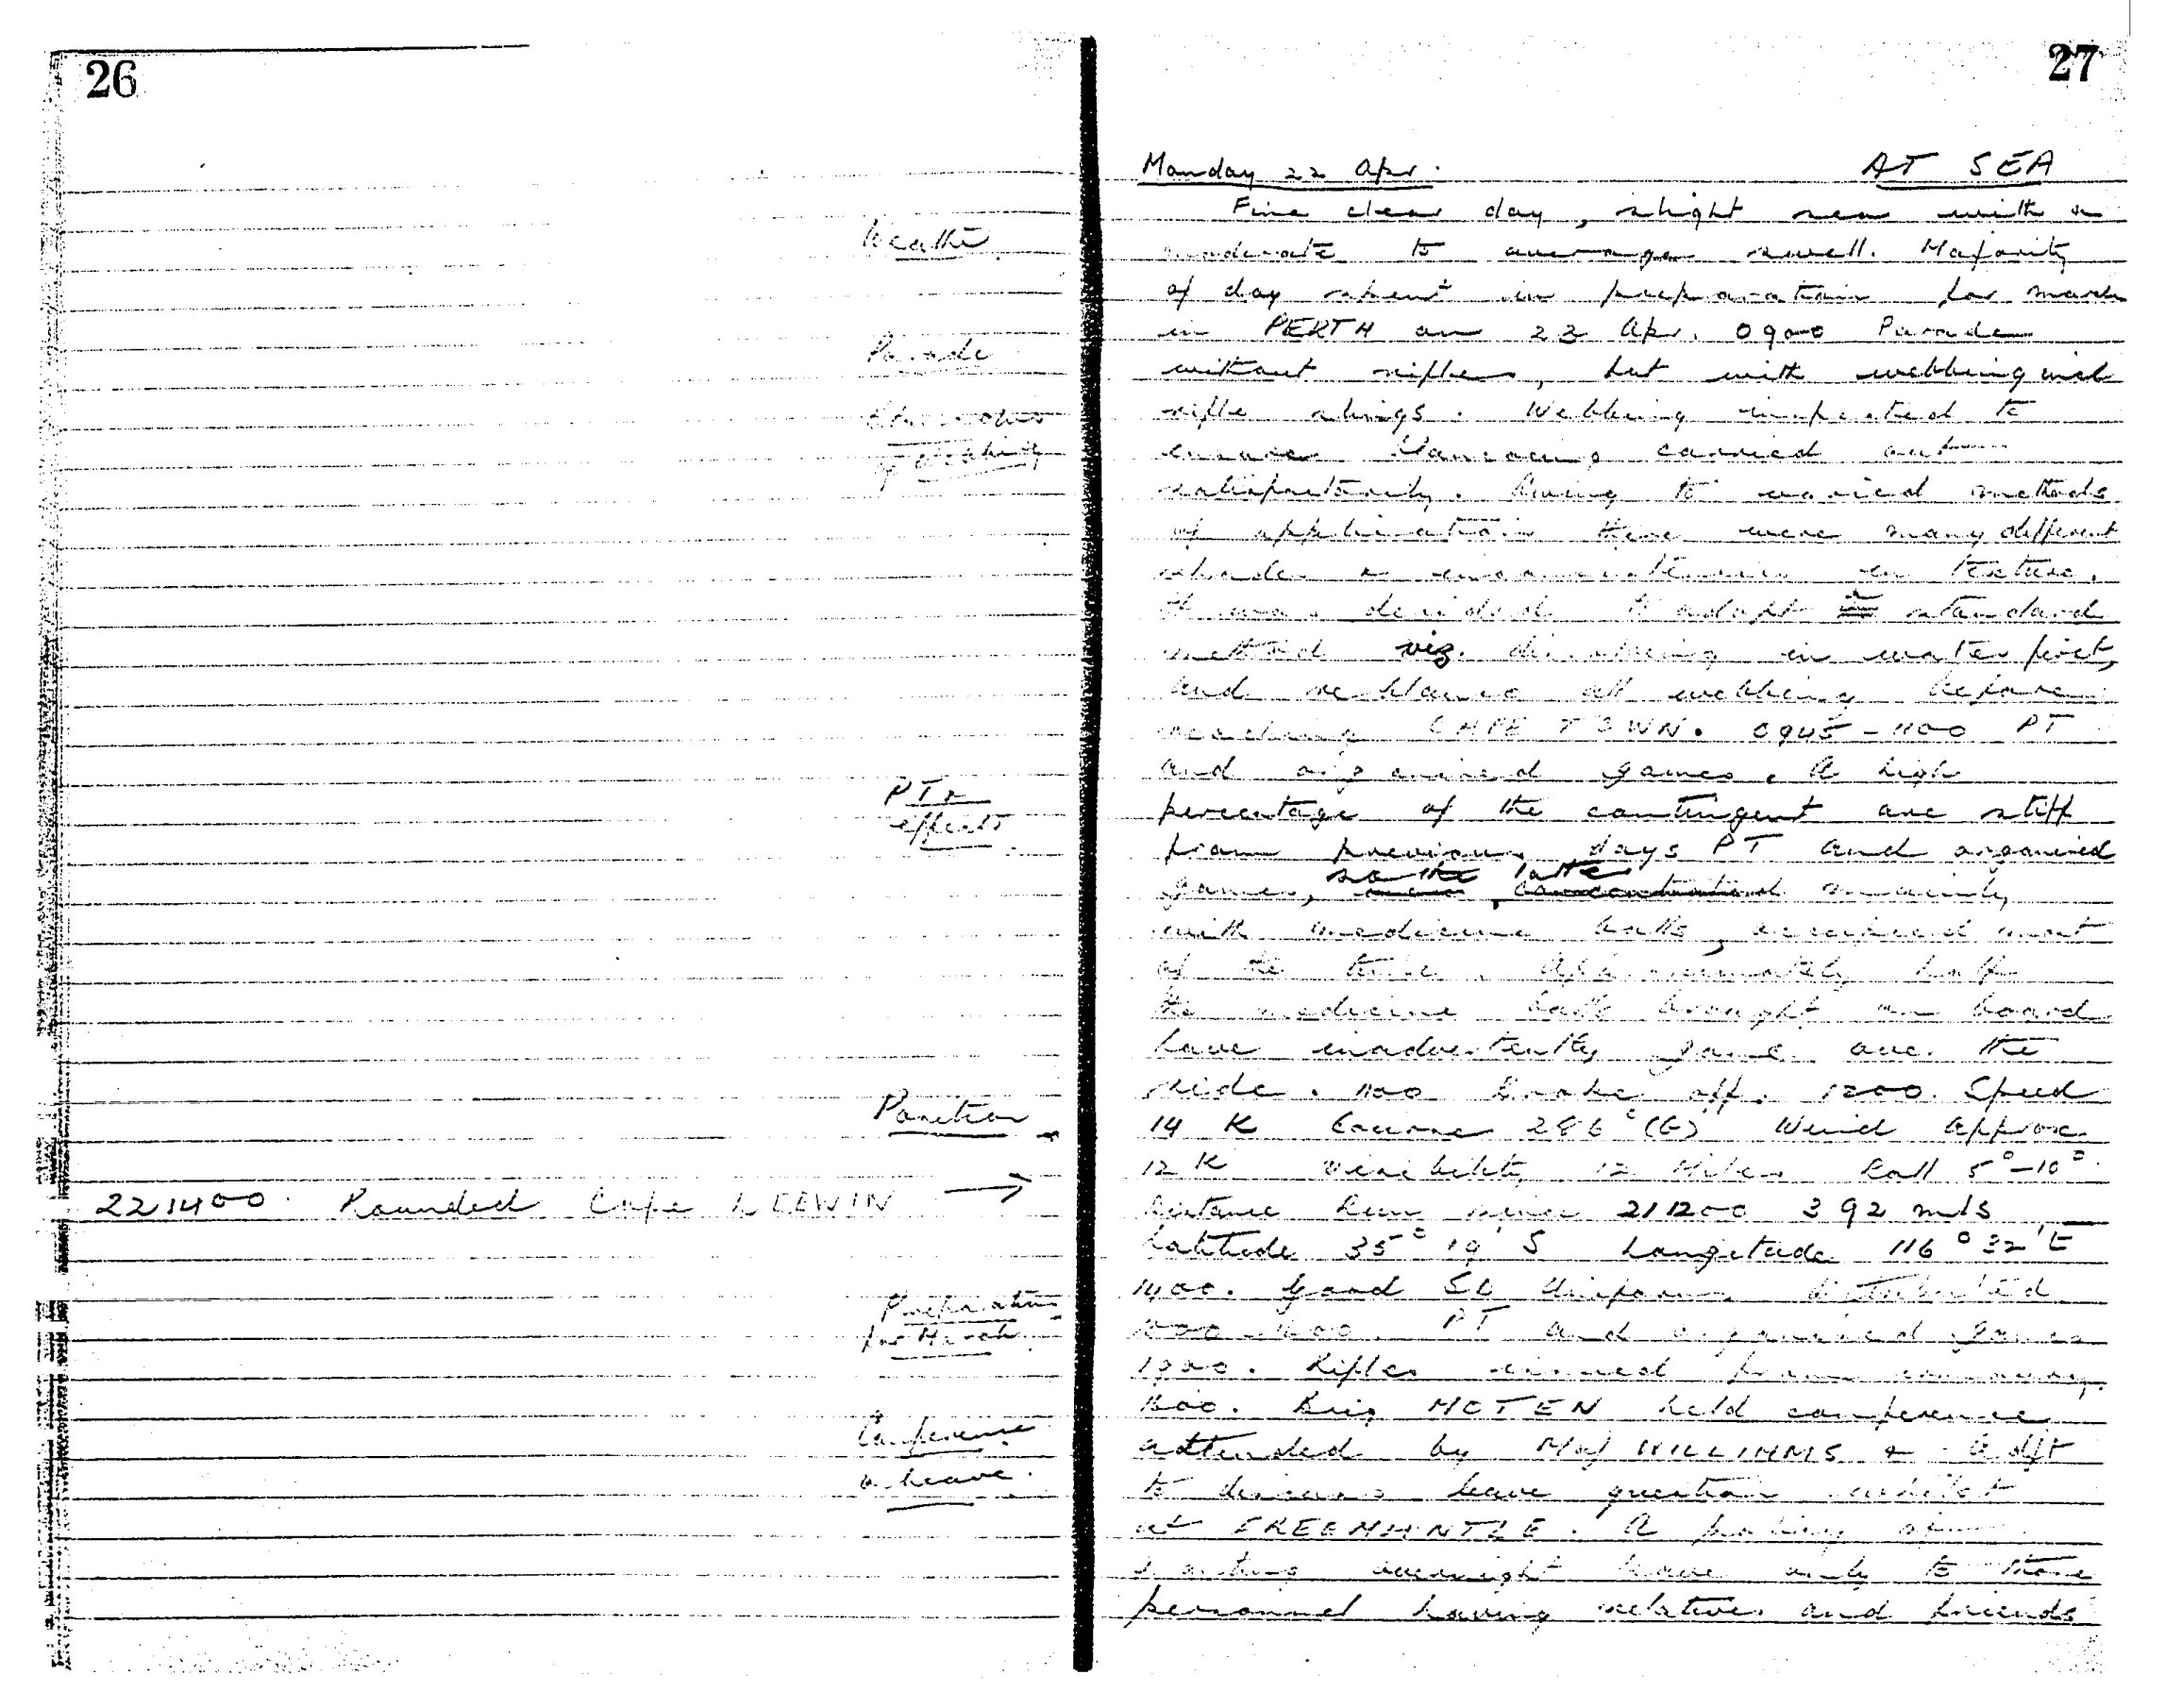 26
Weather
Parade
of Webbing
PT &
effects
Position
221400. Rounded Cape LEEWIN →
Preparations
for March
Conference
& Leave.
27
Monday 22 Apr. AT SEA
Fine clear day, slight sea with a
moderate to average swell. Majority
of day spent in preparation for march
in PERTH on 23 Apr. 0900 Parade
without rifles, but with webbing and
rifle slings. Webbing inspected to
ensure blancoing carried out
satisfactorily. Owing to varied methods
of application there were many different
shades & inconsistencies in texture.
It was decided to adopt a standard
method viz. dissolving in water first,
and reblanco all webbing before
reaching CAPE TOWN. 0945-1100 PT
and organised games. A high
percentage of the contingent are stiff
from previous days PT and organised
games, so the latter concentrated mainly
with medicine balls, occupied most
of the time. Approximately half
the medicine balls brought on board
have inadvertently gone over the
side. 1100 broke off. 1200. Speed
14 K Course 286° (G) Wind approx
12 K Visibility 12 Miles Roll 5°-10°
Distance Run since 211200 392 mls
Latitude 35° 19' S Longitude 116° 32' E
1400. Good SD Uniforms distributed
PT and organised games
Rifles issued from armoury.
1600. Brig MOTEN held conference
attended by Maj WILLIAMS & Adjt
to discuss leave question whilst
at FREEMANTLE. A policy of
granting overnight leave only to those
personnel having relatives and friends